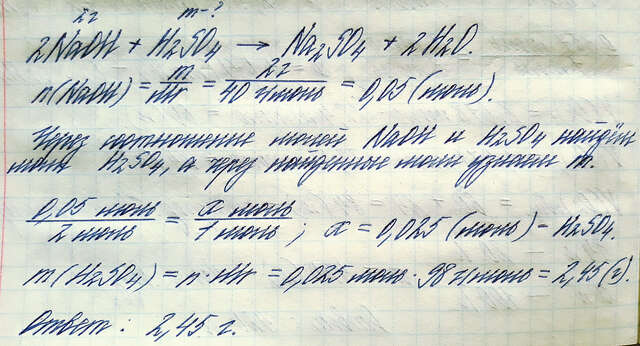 2г m-?
2NaOH + H2SO4 → Na2SO4 + 2H2O.
n(NaOH) = m/Mr = 2г/40 г/моль = 0,05 (моль).
Через соотношение молей NaOH и H2SO4 найдём
моли H2SO4, а через найденные моли узнаем m.
0,05 моль/2 моль = x моль/1 моль; x = 0,025 (моль) - H2SO4.
m(H2SO4) = n · Mr = 0,025 моль · 98 г/моль = 2,45 (г).
Ответ: 2,45 г.